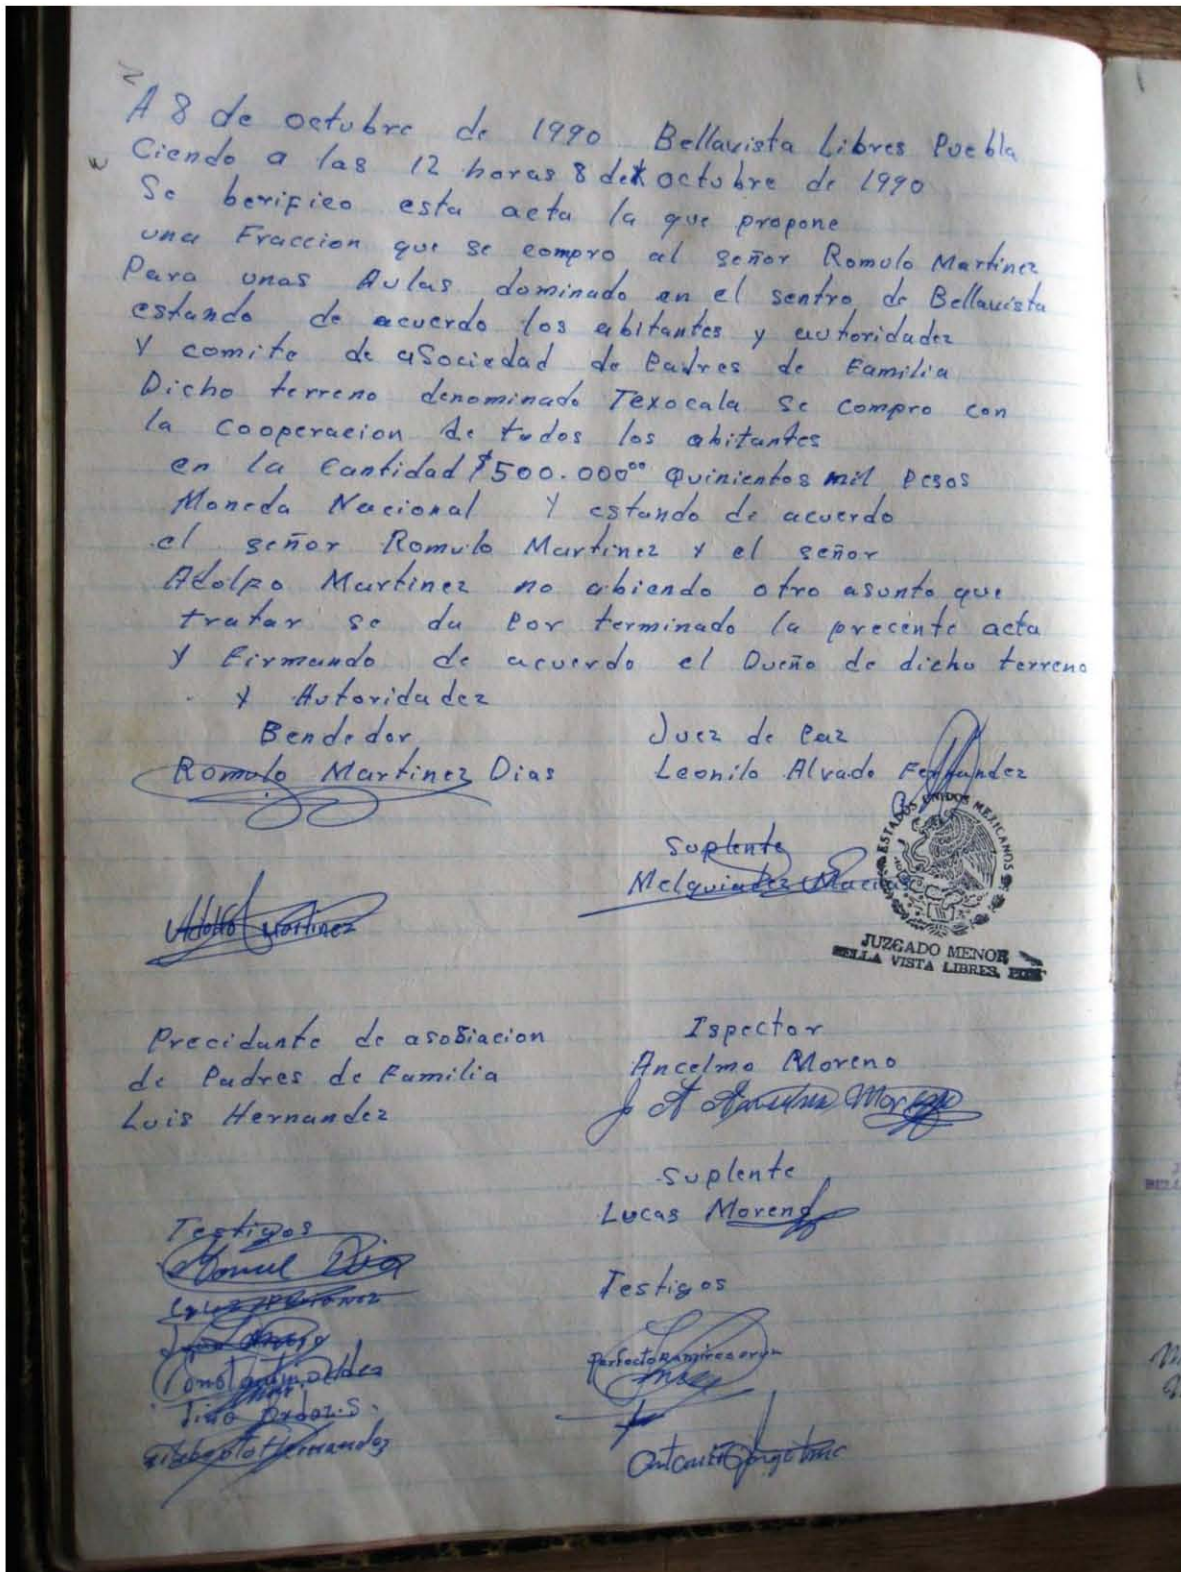 A 8 de octubre de 1990 Bellavista Libres Puebla
Ciendo a las 12 horas 8 del octubre de 1990
Se berifico esta acta la que propone
una Fraccion que se compro al señor Romulo Martinez
Para unas Aulas dominado en el sentro de Bellavista
estando de acuerdo los abitantes y autoridadez
Y comite de aSociedad de Padres de Familia
Dicho terreno denominado Texocala Se compro con
la Cooperacion de todos los abitantes
en la Cantidad $500.000°° Quinientos mil Pesos
Moneda Nacional Y estando de acuerdo
el señor Romulo Martinez y el señor
Adolfo Martinez no abiendo otro asunto que
tratar se da Por terminado la precente acta
Y Firmando de acuerdo el Dueño de dicho terreno
Y Autoridadez
Bendedor
Romulo Martinez Dias
Adolfo Martinez
Juez de Paz
Leonilo Alvado Fernandez
Suplente
Melquiadez Macias
ESTADOS UNIDOS MEXICANOS
JUZGADO MENOR
BELLA VISTA LIBRES, PUE
Precidente de asosiacion
de Padres de Familia
Luis Hernandez
Ispector
Ancelmo Moreno
Moreno
Suplente
Lucas Moreno
Testigos
Manuel
Tino Ordoz S.
Gilberto Hernandez
Testigos
Perfecto Ramirez
Antonio Jorge